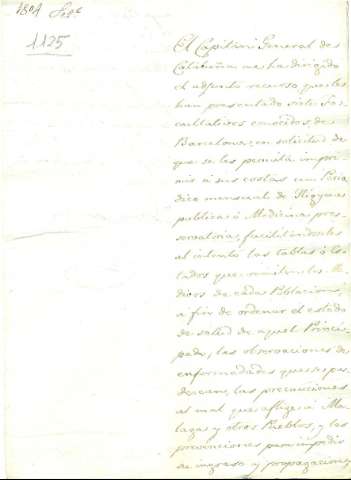 1804 Sepe
1125
El Capitan General de
Cataluña me ha dirigido
el adjunto recurso, que le
han presentado siete Fa-
cultativos conocidos, de
Barcelona, en solicitud de
que se les permita impri-
mir à sus costas un Perio
dico mensual de Higiene
publica ó Medicina pre-
servativa, facilitandoles
al intento las tablas ó Es-
tados que remiten los Me-
dicos de cada Poblacion,
a fin de ordenar el estado
de salud de aquel Princi-
pado, las observaciones de
enfermedades que se pa-
dezcan, las precauciones
al mal que aflige à Ma-
laga y otros Pueblos, y las
prevenciones para impedir
su ingreso y propagacion